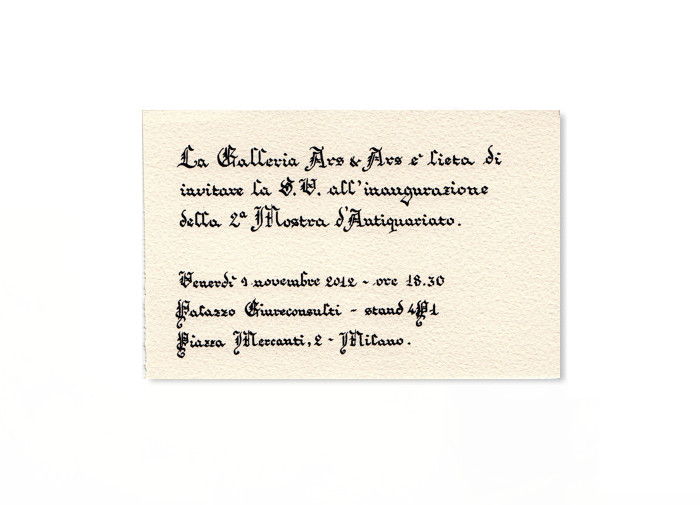 La Galleria Ars & Ars e' lieta di
invitare la S.V. all'inaugurazione
della 2ª Mostra d'Antiquariato.
Venerdi' 9 novembre 2012 - ore 18.30
Palazzo Giureconsulti - stand 4P1
Piazza Mercanti, 2 - Milano.